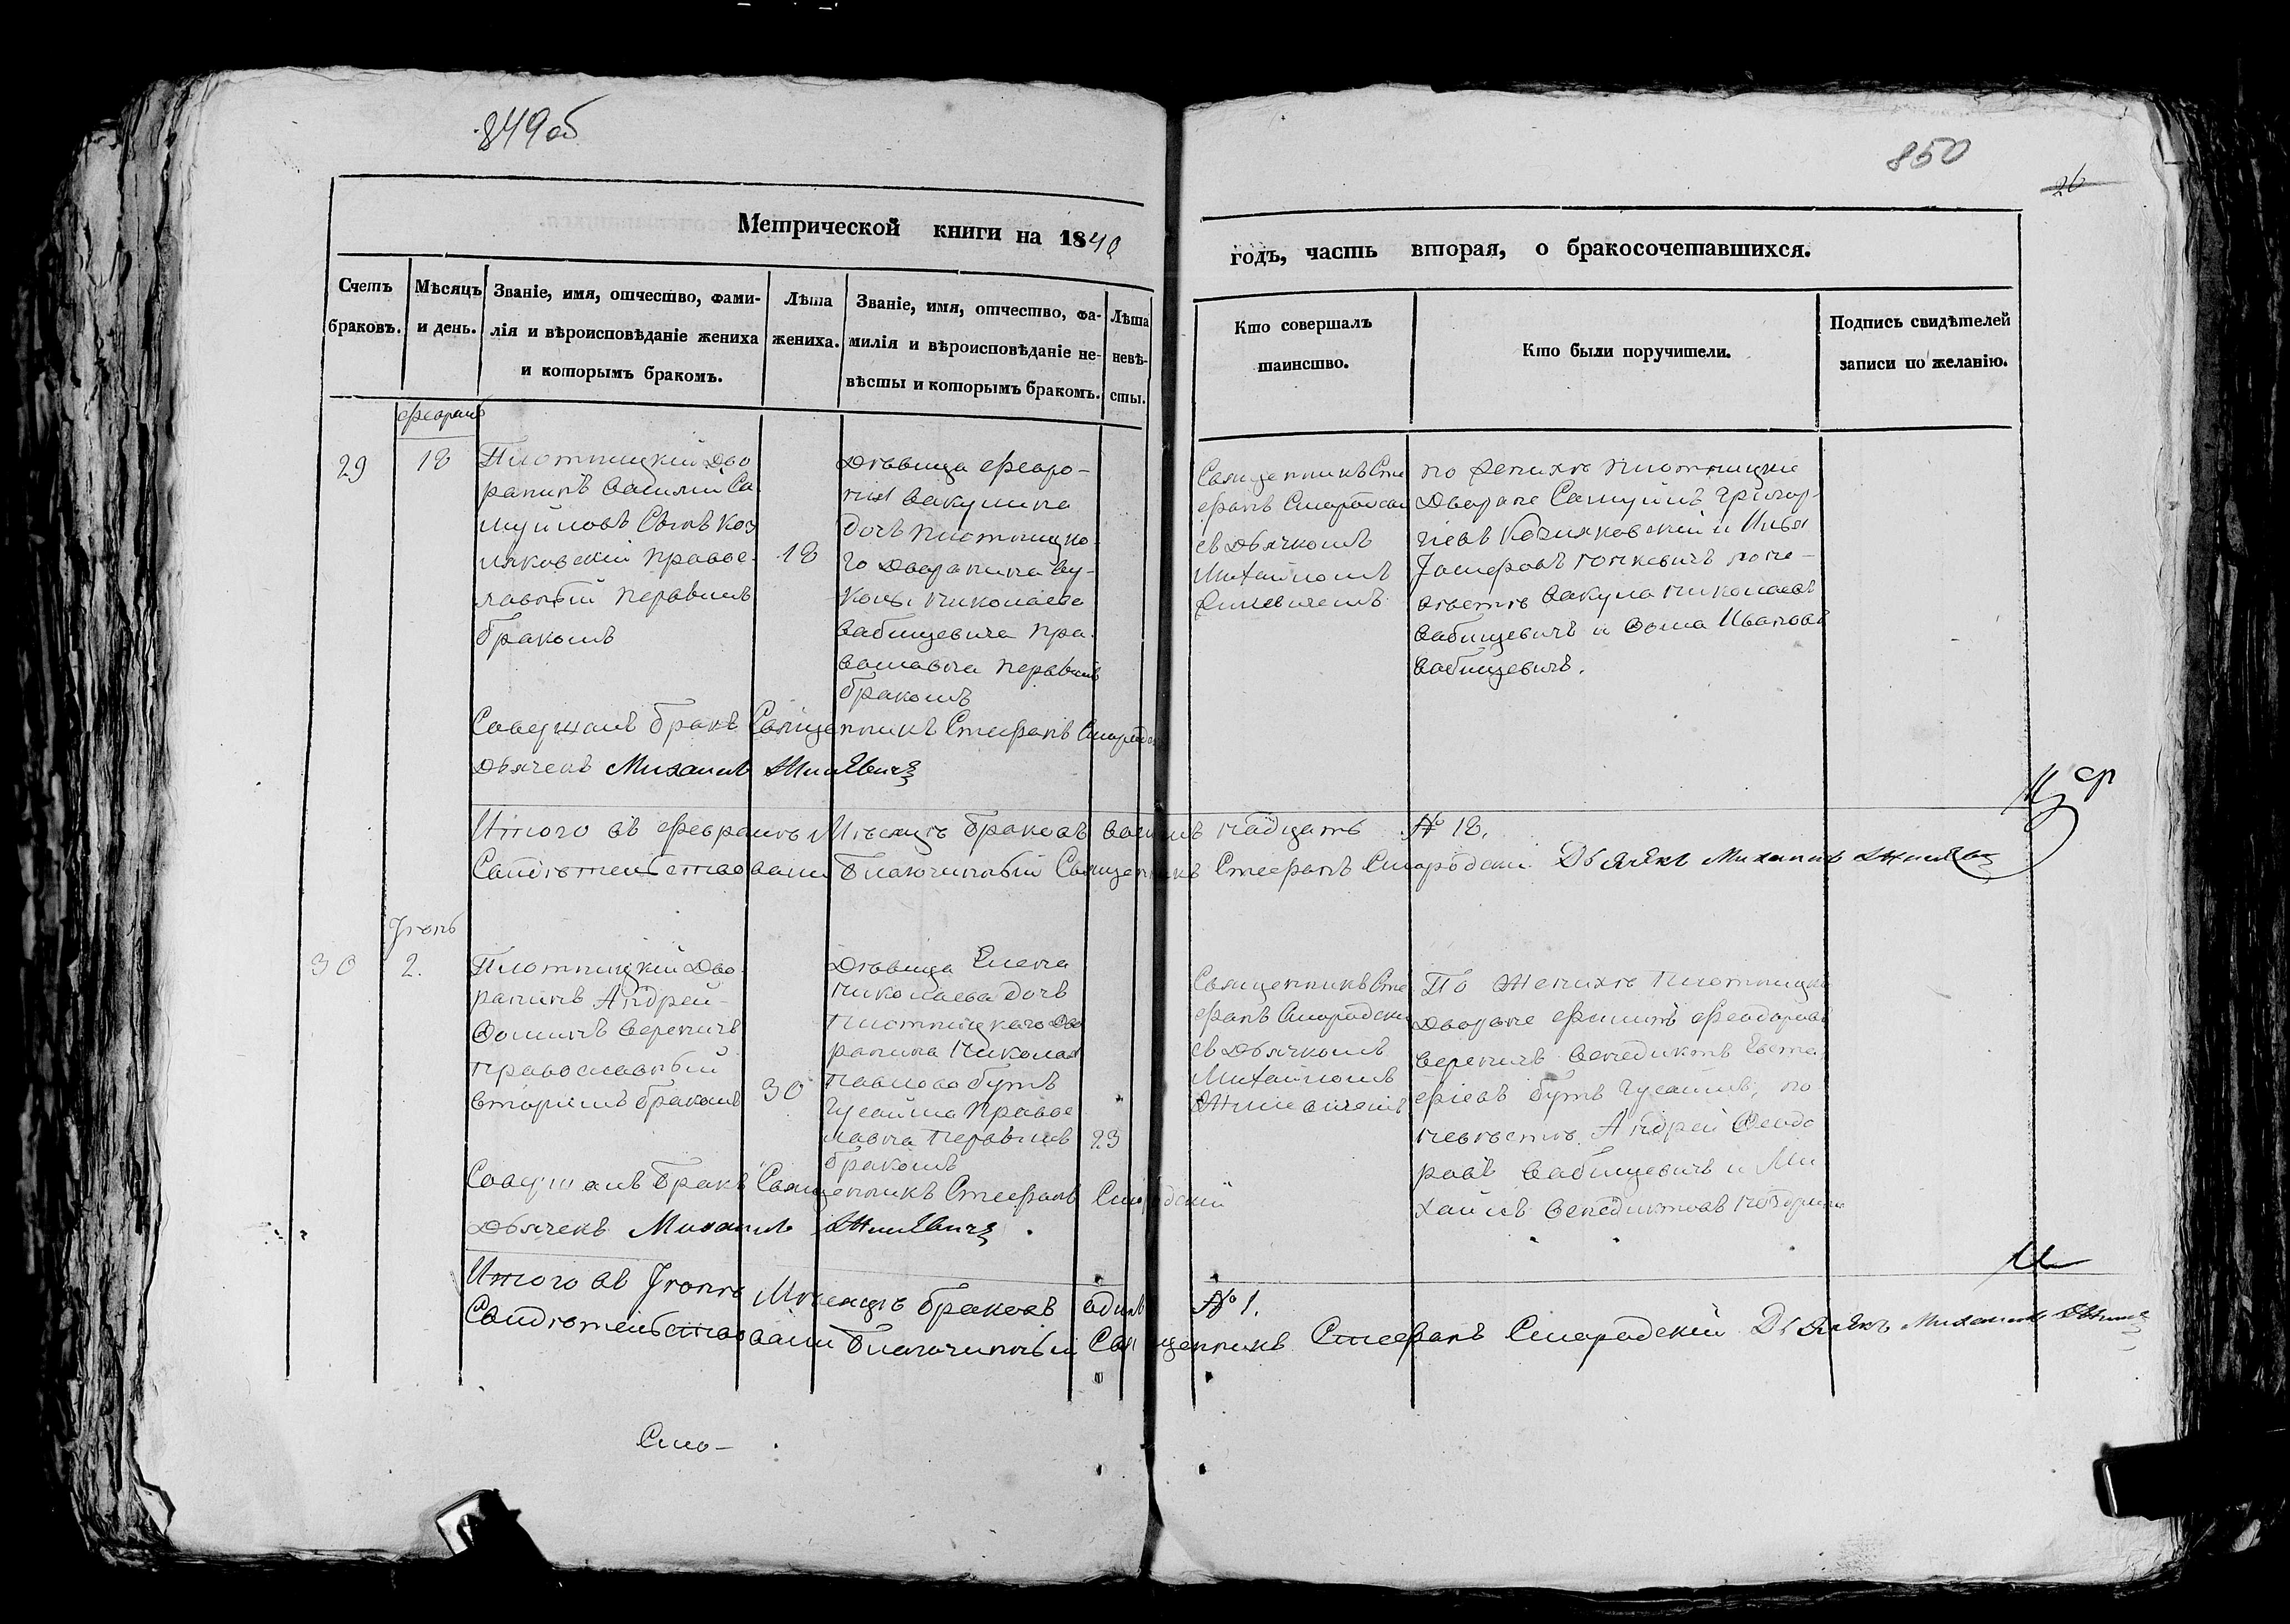 849об
850
26
Метрической книги на 1840
годъ, часть вторая, о бракосочетавшихся.
Счетъ
браковъ.
Мѣсяцъ
и день.
Званіе, имя, отчество, фами-
лія и вѣроисповѣданіе жениха
и которымъ бракомъ.
Лѣта
жениха.
Званіе, имя, отчество, фа-
милія и вѣроисповѣданіе не-
вѣсты и которымъ бракомъ.
Лѣта
невѣ-
сты.
Кто совершалъ
таинство.
Кто были поручители.
Подпись свидѣтелей
записи по желанію.
Февраль
29
18
Плотницкій Дво
ранинъ Василий Са
муйловъ Сынъ Коз
ляковскій Правос-
лавный Первымъ
бракомъ
18
Дѣвица Февро-
нія Вакулина
дочъ Плотницко-
го Дворанина Ву-
колы Николаева
Бабицевича Пра-
вославна Первымъ
бракомъ
Священникъ Сте
фанъ Смородски
съ Дьячкомъ
Михайломъ
по Жениху Плотницкие
Дворане Самуилъ Григор-
Козляковский и Илья
Іосифовъ по не-
вѣстѣ Вакула Николаевъ
Бабицевичъ и Фома Ивановъ
Бабицевичъ.
Совершалъ бракъ Священникъ Стефанъ Смородс
Дьячекъ Михаилъ
Итого въ Февралѣ Мѣсяцѣ браковъ восимъ надцать № 18.
Свидѣтельствовали Благочинный Священникъ Стефанъ Смородски Дьячекъ Михаилъ
Іюнь
30
2.
Плотницкій Дво
ранинъ Андрей
Фоминъ Вереничъ
Православный
вторымъ бракомъ
30
Дѣвица Елена
Николаева дочъ
Плотницкаго Дво
ранина Николая
Павлова Бутъ
Гусаима Правос
лавна Первымъ
бракомъ
23
Священникъ Сте
фанъ Смородски
съ Дьячкомъ
Михайломъ
По Жениху Плотницки
Дворане Филипъ Феодоровъ
Вереничъ Венедиктъ Евста
фіевъ Бутъ Гусаимъ, по
невѣстѣ Андрей Феодо
ровъ Бабицевичъ и Ми
хаилъ Венедиктовъ
Совершалъ Бракъ Священникъ Стефанъ Смородский
Дьячекъ Михаилъ
Итого въ Іюнѣ Мѣсяцѣ браковъ одинъ № 1.
Свидѣтельствовали Благочинный Священникъ Стефанъ Смородский Дьячекъ Михаилъ
Смо-